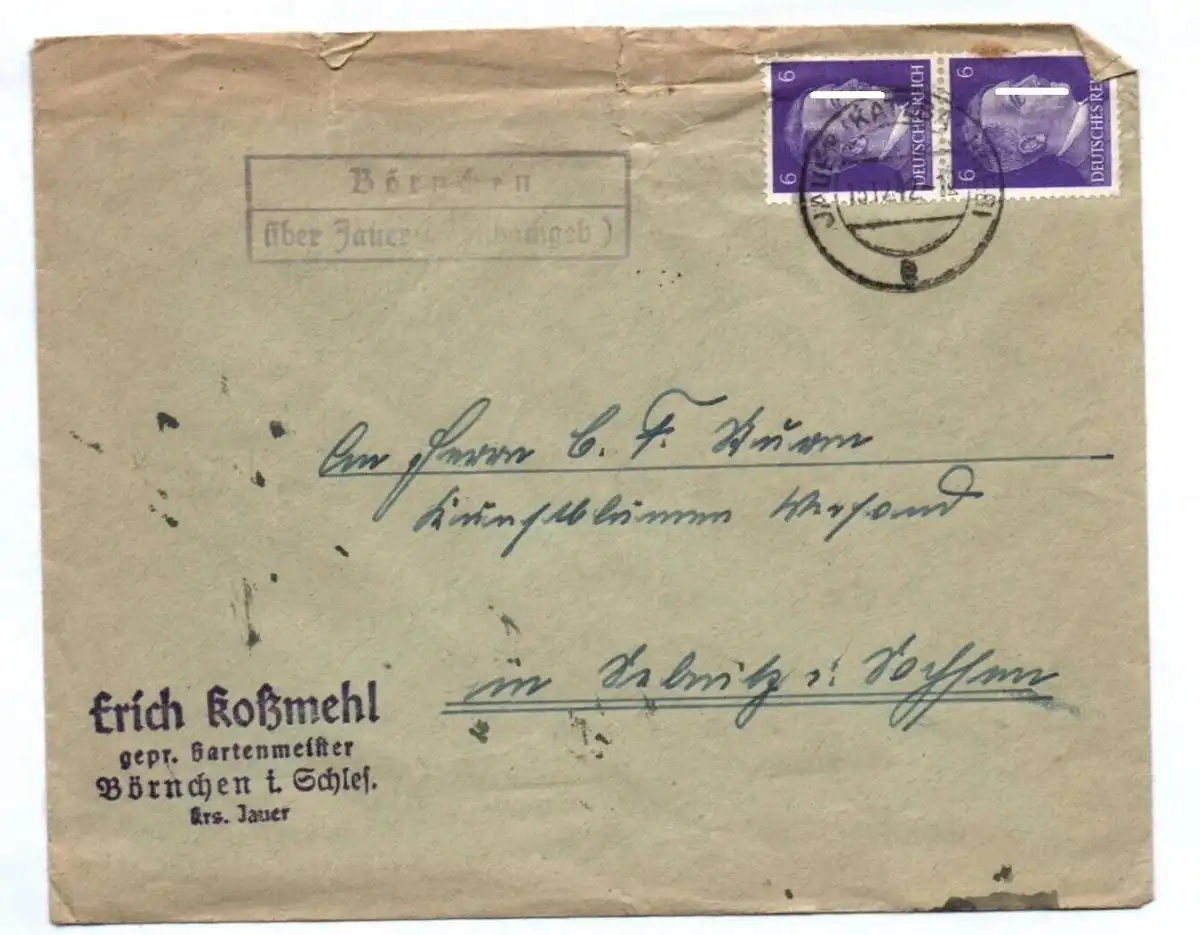 Börnchen
über Jauer
6 DEUTSCHES REICH 6
6 DEUTSCHES RE 6
JAUER
An Herrn C. F. Wurm
Kunstblumen Versand
in Sebnitz i. Sachsen
Erich Koßmehl
gepr. Gartenmeister
Börnchen i. Schles.
Krs. Jauer